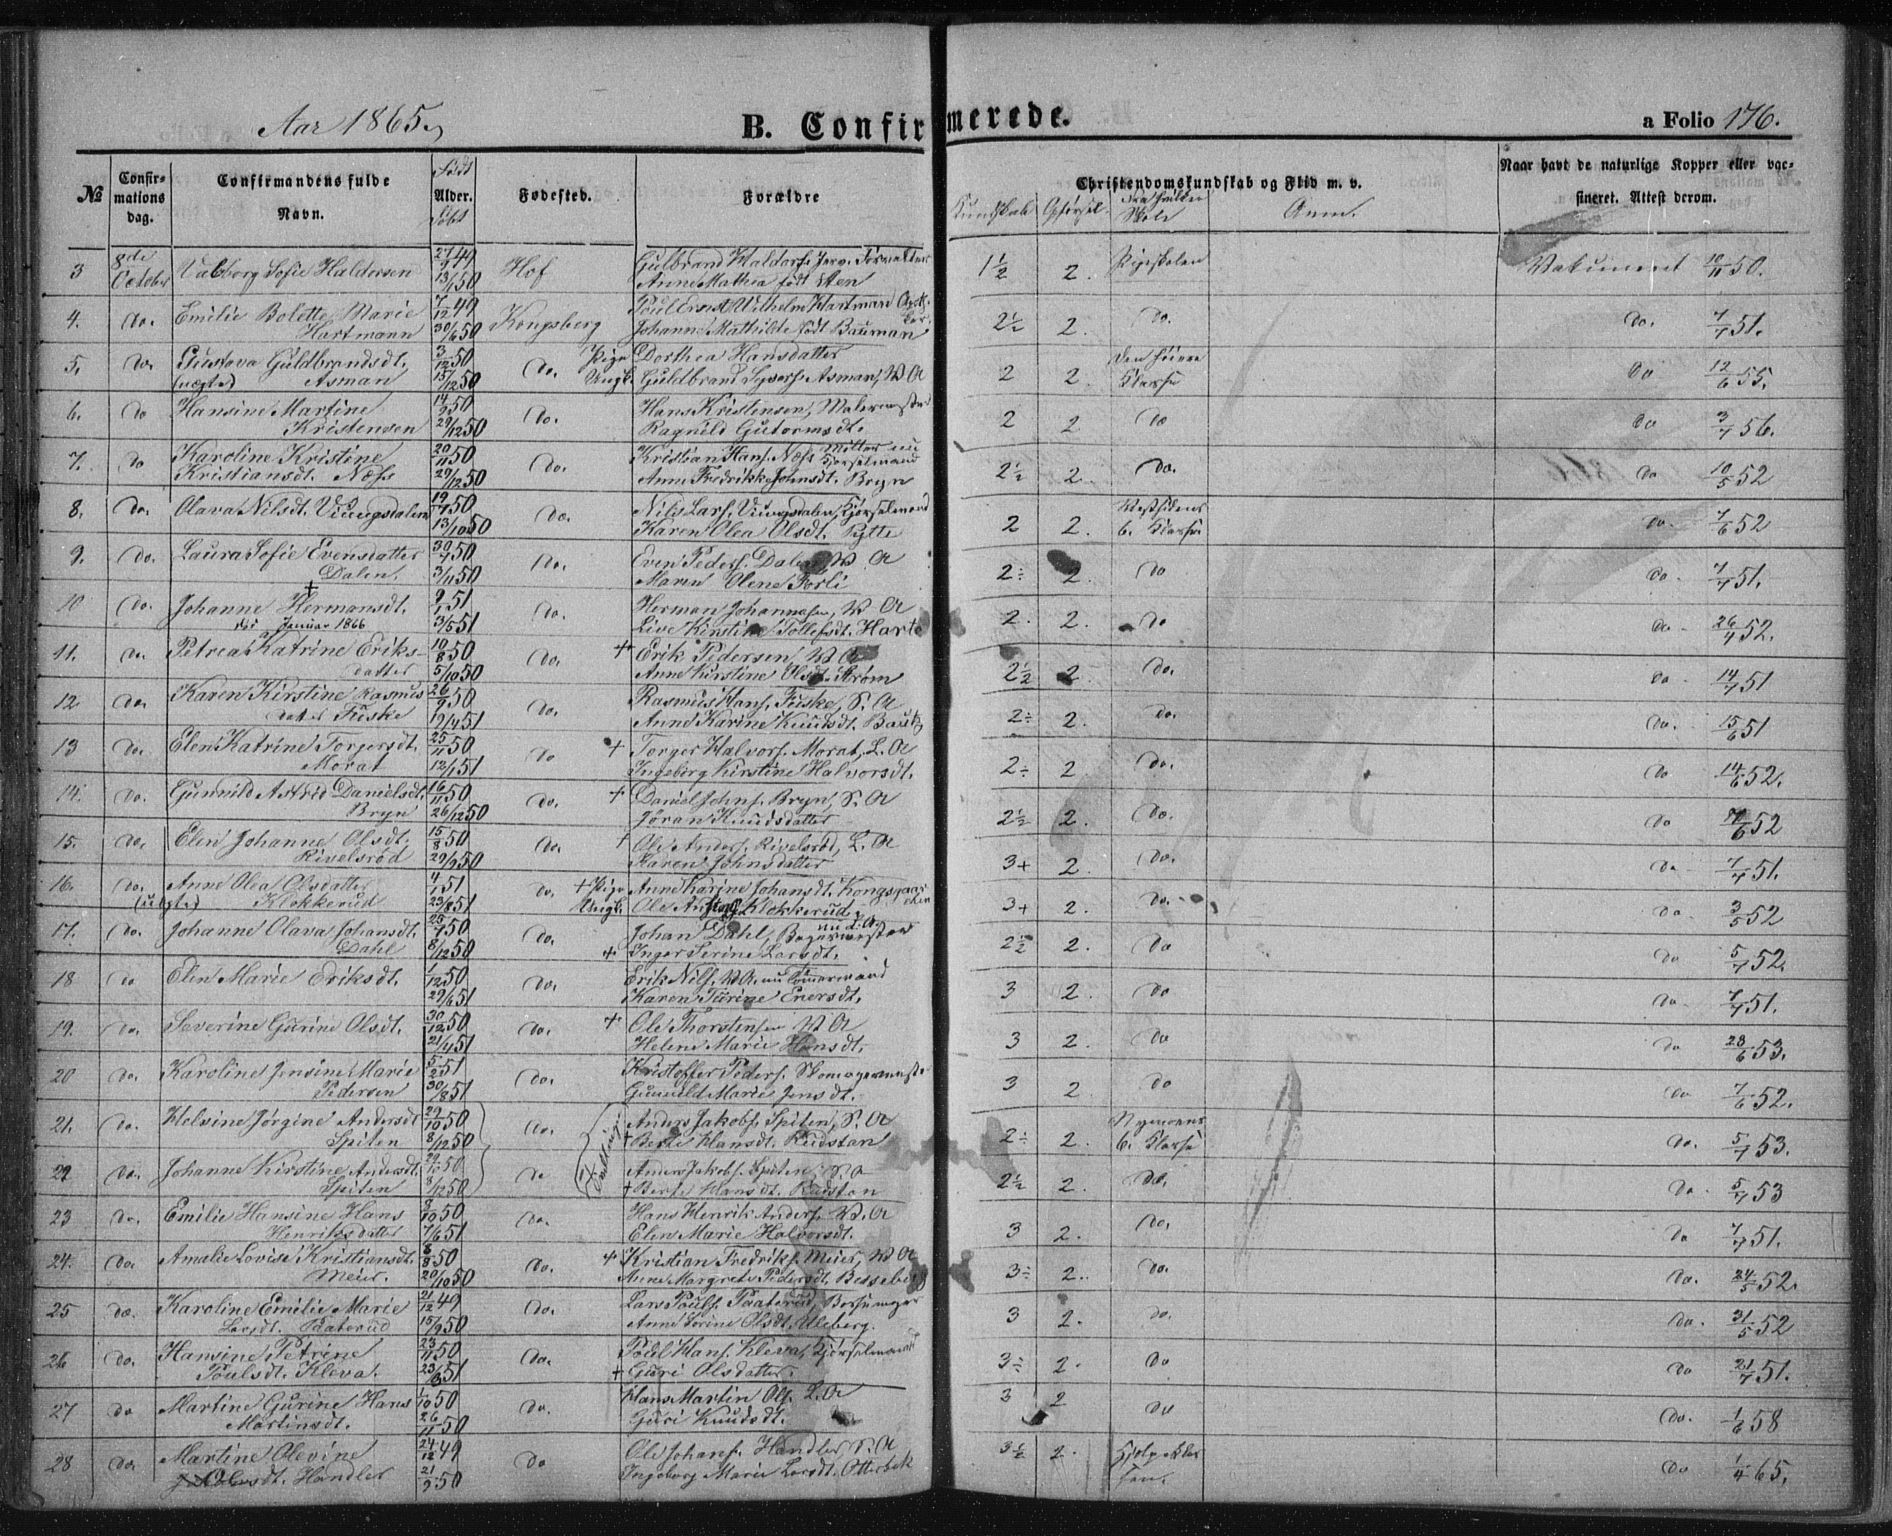 Aar 1865.
B. Confirmerede.
a Folio 176.
№
Confirmations dag.
Confirmandens fulde Navn.
Født
Alder.
Døbt
Fødested.
Forældre
Christendomskundskab og Flid m. v.
Kundskab
Anm.
Naar havt de naturlige Kopper eller vaccineret. Attest derom.
3 8de October Valborg Sofie Haldorsen 13/1 50 Hof
Anne Mathea født Sten
1½ 2. Pigeskolen 50.
4. Do. Emilie Bolette Marie 7/12 49 Kongsberg Poul Ernst Wilhelm Hartman
Hartmann 30/6 50 Johanne Mathilde født Bauman
2½ 2. Do. Do. 7/7 51.
5. Do. Gustava Guldbrandsdt. 3/12 50 Do. Pige Dorthea Hansdatter
(uægte) Asman 15/12 50 Ungk. Guldbrand Syvers. Asman, B A
2 2. Den høiere Klasse Do 12/6 55.
6. Do Hansine Martine 14/9 50 Do. Hans Kristensen, Malermester
Kristensen 29/12 50 Ragnild Gutormsdt.
2 2 Do Do 3/7 56.
7. Do Karoline Kristine 20/11 50 Do. Kristian Hans. Næss
Kristiansdt. Næss 29/12 50 Anne Fredrikke Johnsdt. Bryn
2½ 2. Do. Do 10/5 52
8. Do. Olava Nilsdt. Vinngsdalen 19/9 50 Do. Nils Lars. Vinngsdalen, Kjørselmand
13/10 50 Karen Olea Olsdt. Pytte
2 2. Vestsidens 6. Klasse Do. 7/6 52
9. Do. Laura Sofie Evensdatter 30/7 50 Do. Even Peders. Dalen, B A
Dalen. 3/11 50 Maren Olene Forli
2÷ 2. Do Do. 7/7 51.
10 Do. Johanne Hermansdt. 9/1 51 Do. Herman Johannesen, B A
Januar 1866 3/5 51 Live Kirstine Tollefsdt. Harte
2. 2. Do Do 26/4 52.
11. Do. Petrea Katrine Eriks- 10/8 50 Do. Erik Pedersen, B A
datter 5/10 50 Anne Kirstine Olsdt. Strøm
2½ 2. Do. Do 14/7 51
12 Do. Karen Kirstine Rasmus 26/9 50 Do. Rasmus Hans. Fiske, S. A
datter Fiske 19/4 51 Anne Karine Knudsdt. Bautz
2÷ 2. Do. Do. 15/6 51
13 Do. Elen Katrine Torgersdt. 25/11 50 Do + Torger Halvors. Morat, L. A
Morat 12/1 51 Ingeborg Kirstine Halvorsdt.
2÷ 2 Do. Do 14/6 52.
14. Do. Gunnild Astrid Danielsdt. 16/11 50 Do. + Daniel Johns. Bryn, S. A
Bryn 26/12 50 Jøran Knudsdatter
2½ 2. Do. Do 52
15. Do. Elen Johanne Olsdt. 15/8 50 Do. + Ole Anders. Rivelsrød, L. A
Rivelsrød 29/9 50 Karen Johnsdatter
3+ 2. Do. Do 7/7 51.
16. Do. Anne Olea Olsdatter 4/1 51 Do. + Pige Anne Karine Johansdt. Kongsgaarden
(uægte) Klokkerud 23/8 51 Ungk. Klokkerud
3+ 2. Do. Do. 3/5 52
17. Do. Johanne Olava Johansdt. 25/7 50 Do. Johan Dahl, Bagermester
Dahl 8/12 50 + Inger Serine Larsdt.
2½ 2. Do Do 5/7 52.
18 Do Elen Marie Eriksdt. 1/12 50 Do. Erik Nils. B A. nu Tømermand
29/6 51 Karen Turine Enersdt.
3 2. Do Do. 7/7 51.
19. Do. Severine Gurine Olsdt. 30/12 50 Do. + Ole Thorstensen B A
21/4 51 Helene Marie Hansdt.
3 2. Do Do 28/6 53.
20 Do. Karoline Jensine Marie 5/2 51 Do. Kristoffer Peders. Skomagermester
Pedersen 30/8 51 Gunnild Marie Jensdt.
3 2. Do Do 7/6 52.
21. Do. Helvine Jørgine Andersdt. 29/10 50 Do. Tvillinger Anders Jakobs. Spiten, S. A
Spiten 8/12 50 + Berte Hansdt. Rudstan
2÷ 2. Nymoens 6. Klasse Do. 5/7 53.
22 Do. Johanne Kirstine Andersdt. 29/10 50 Do Anders Jakobs. Spiten, S. A
Spiten 8/12 50 + Berte Hansdt. Rudstan
2½ 2. Do. Do. 5/7 53
23 Do. Emilie Hansine Hans 8/10 50 Do. Hans Henrik Anders. B. A
Henriksdatter 7/6 51 Elen Marie Halvorsdt.
3 2. Do. Do 7/7 51.
24. Do. Amalie Lovise Kristiansdt. 8/8 50 Do. + Kristian Fredriks. Meier, B A
Meier. 20/10 50 Anne Margrete Pedersdt. Besseberg
3÷ 2. Do. Do. 24/5 52.
25 Do. Karoline Emilie Marie 21/12 49 Do. Lars Pouls. Paaterud, Børsemager
Larsdt. Paaterud 15/9 50 Anne Sorine Olsdt. Uleberg.
3 2. Do. Do. 31/5 52
26 Do. Hansine Petrine 23/11 50 Do. Poul Hans. Kleva, Kjørselmand
Poulsdt. Kleva. 51 + Guri Olsdatter.
3÷ 2. Do Do 21/7 51.
27 Do Martine Gurine Hans 1/10 50 Do. Hans Martin Ols. L. A
Martinsdt. 26/11 50 Guri Knudsdt.
3 2 Do Do. 1/6 58
28 Do. Martine Olevine 24/12 49 Do Ole Johans. Handler S. A
Olsdt. Handler 21/9 50 Ingeborg Marie Larsdt. Otterbek
3½ 2. Do 1/4 65.